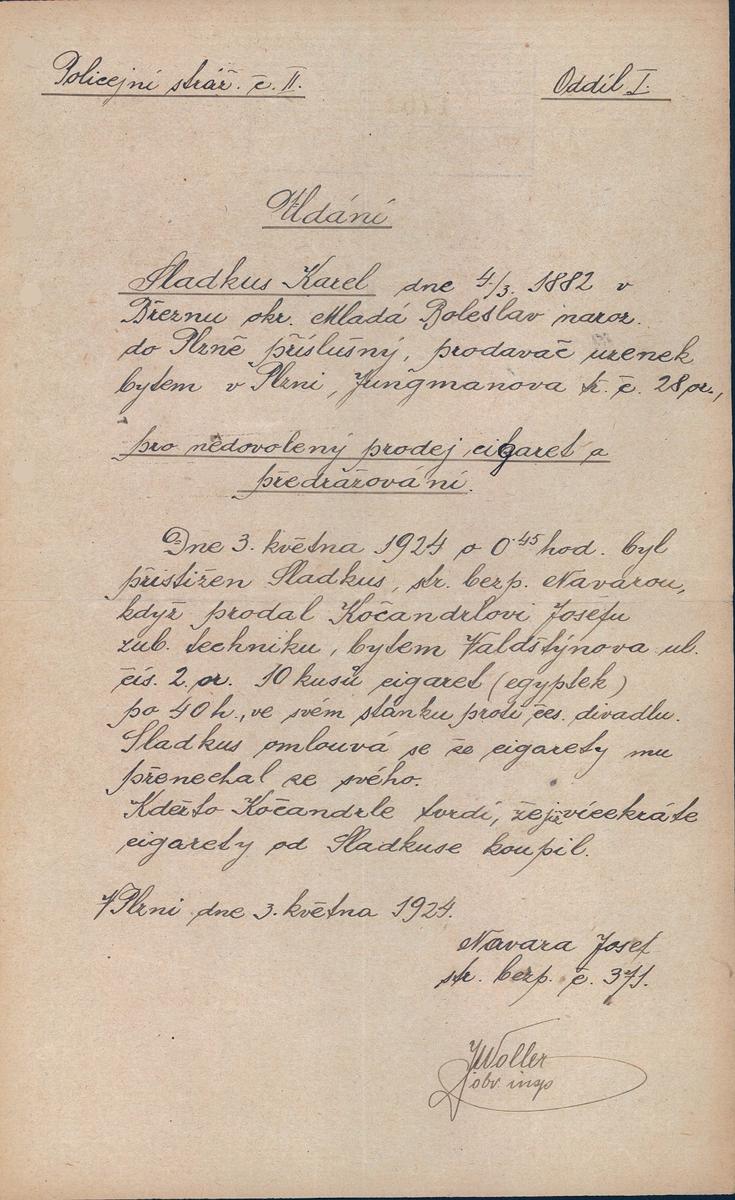 Policejní stráž. č. II.
Oddíl I.
Udání
Sladkus Karel dne 4./3. 1882 v
Březnu okr. Mladá Boleslav naroz.
do Plzně příslušný, prodavač uzenek
bytem v Plzni, Jungmanova tř. č. 28 or.,
pro nedovolený prodej cigaret a
předražování.
Dne 3. května 1924 o 0.45 hod. byl
přistižen Sladkus, str. bezp. Navarou,
když prodal Kočandrlovi Josefu
zub. techniku, bytem Valdštýnova ul.
čís. 2. or. 10 kusů cigaret (egyptek)
po 40 h., ve svém stánku proti čes. divadlu.
Sladkus omlouvá se že cigarety mu
přenechal ze svého.
Kdežto Kočandrle tvrdí, že již vícekráte
cigarety od Sladkuse koupil.
V Plzni dne 3. května 1924.
Navara Josef
str. bezp. č. 371.
JWoller
obv. insp